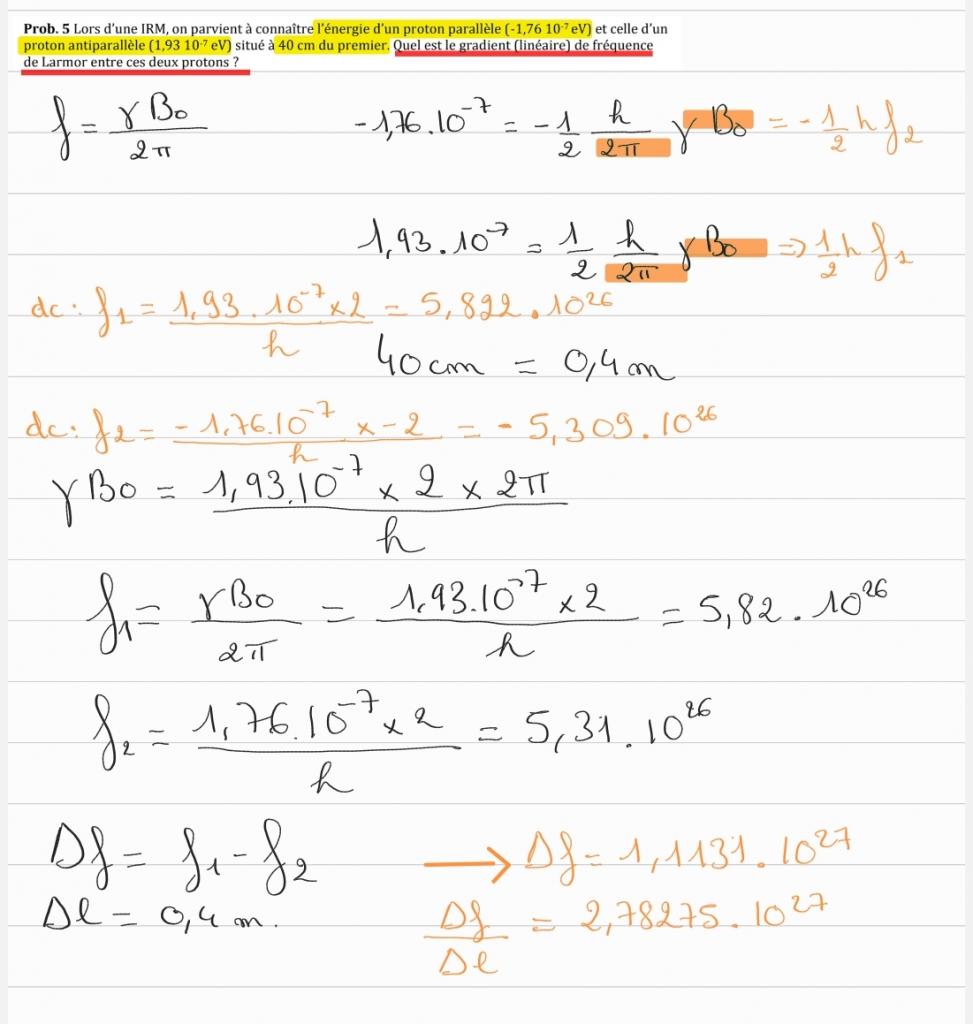 Prob. 5 Lors d'une IRM, on parvient à connaître l'énergie d'un proton parallèle (-1,76 10⁻⁷ eV) et celle d'un
proton antiparallèle (1,93 10⁻⁷ eV) situé à 40 cm du premier. Quel est le gradient (linéaire) de fréquence
de Larmor entre ces deux protons ?
f = γB₀ / 2π    -1,76.10⁻⁷ = -1/2 h/2π γ B₀ = -1/2 h f₂
1,93.10⁻⁷ = 1/2 h/2π γ B₀ => 1/2 h f₁
dc: f₁ = 1,93.10⁻⁷ x2 / h = 5,822.10²⁶
40cm = 0,4m
dc: f₂ = -1,76.10⁻⁷ x-2 / h = -5,309.10²⁶
γB₀ = 1,93.10⁻⁷ x 2 x 2π / h
f₁ = γB₀ / 2π = 1,93.10⁻⁷ x2 / h = 5,82.10²⁶
f₂ = 1,76.10⁻⁷ x2 / h = 5,31.10²⁶
Df = f₁ - f₂ → Df = 1,1131.10²⁷
Δl = 0,4 m.    Df / Δl = 2,78275.10²⁷